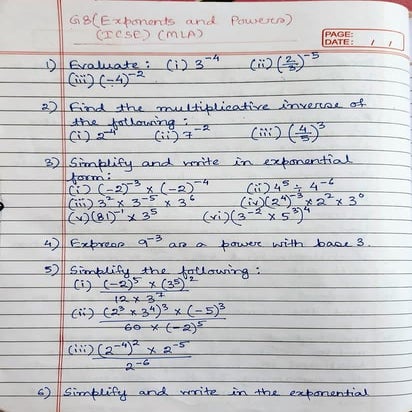 G8 (Exponents and Powers)
(ICSE) (MLA)
PAGE:
DATE: / /
1) Evaluate : (i) 3⁻⁴ (ii) (2/3)⁻⁵
(iii) (-4)⁻²
2) Find the multiplicative inverse of
the following :
(i) 2⁻⁴ (ii) 7⁻² (iii) (4/5)³
3) Simplify and write in exponential
form :
(i) (-2)⁻³ × (-2)⁻⁴ (ii) 4⁵ ÷ 4⁻⁶
(iii) 3² × 3⁻⁵ × 3⁶ (iv) (2⁴)⁻³ × 2² × 3⁰
(v) (81)⁻¹ × 3⁵ (vi) (3⁻² × 5³)⁴
4) Express 9⁻³ as a power with base 3.
5) Simplify the following :
(i) (-2)⁵ × (35)²
12 × 3⁷
(ii) (2³ × 3⁴)³ × (-5)³
60 × (-2)⁵
(iii) (2⁻⁴)² × 2⁻⁵
2⁻⁶
6) Simplify and write in the exponential